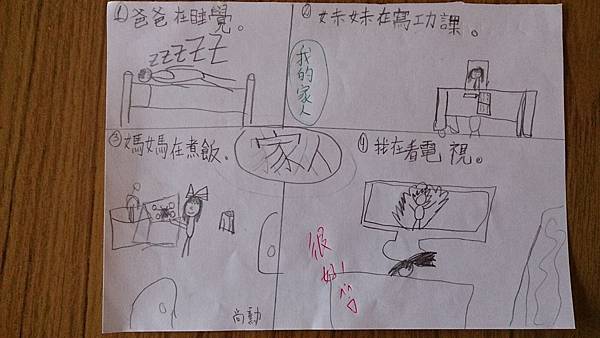 ①爸爸在睡覺。
zzZZZ
②妹妹在寫功課。
我的家人
③媽媽在煮飯。
家人
④我在看電視。
很好!
尚勳